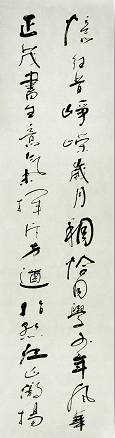 憶往昔崢嶸歲月稠恰同學少年風華
正茂書生意氣揮斥方遒指點江山激揚